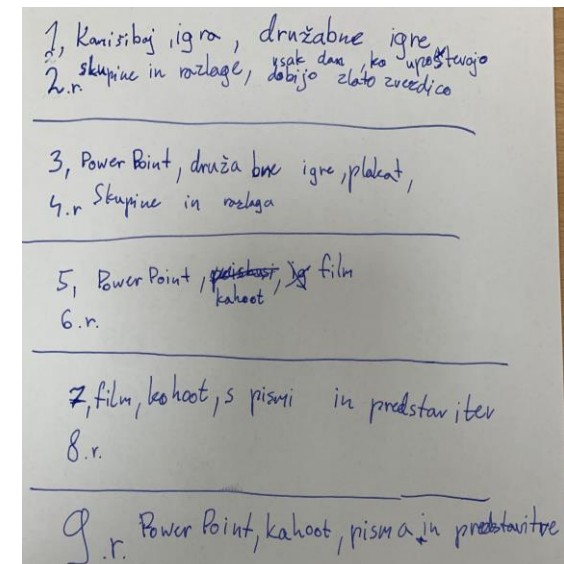 1, Kanisibaj, igra, družabne igre,
2.r. skupine in razlage, vsak dan, ko upoštevajo
dobijo zlato zvezdico
3, Power Point, družabne igre, plakat,
4.r Skupine in razlaga
5, Power Point, film
kahoot
6.r.
7, film, kohoot, s pismi in predstavitev
8.r.
9.r. Power Point, kahoot, pisma in predstavitve